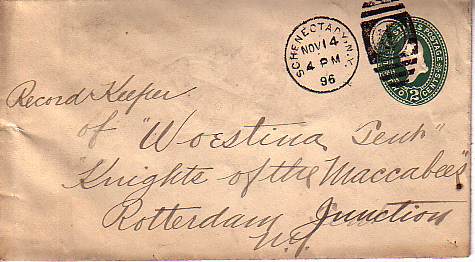 SCHENECTADY, N.Y.
NOV 14
4 PM
96
U.S. POSTAGE
TWO 2 CENTS
Record Keeper
of "Woestina Tent"
"Knights of the Maccabees"
Rotterdam Junction
N.Y.